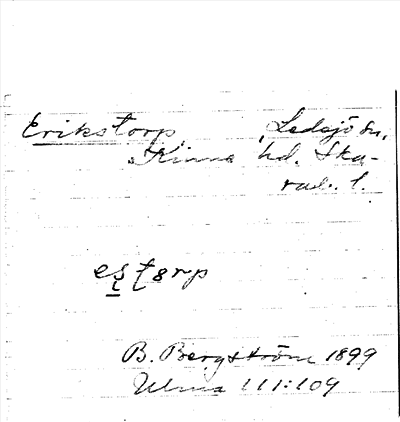 Erikstorp, Ledsjö sn,
Kinne hd. Ska-
rab. l.
B. Bergström 1899
Ulma 111:109